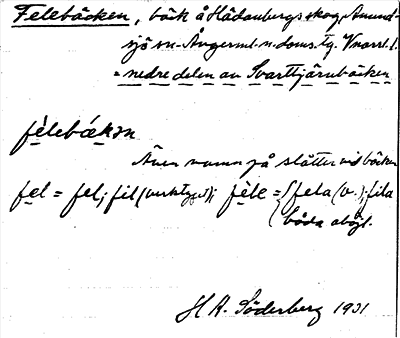 Felebäcken, bäck å Hädanbergs skog, Anund-
sjö sn. Ångerml. n. doms. tg. V norrl. l.
= nedre delen av Svarttjärnbäcken
fèlebǽkən
Även namn på slåtter vid bäcken
fel = fel; fil (verktyget); fèle = { fela (v.); fila
båda oböjl.
H R. Söderberg 1931